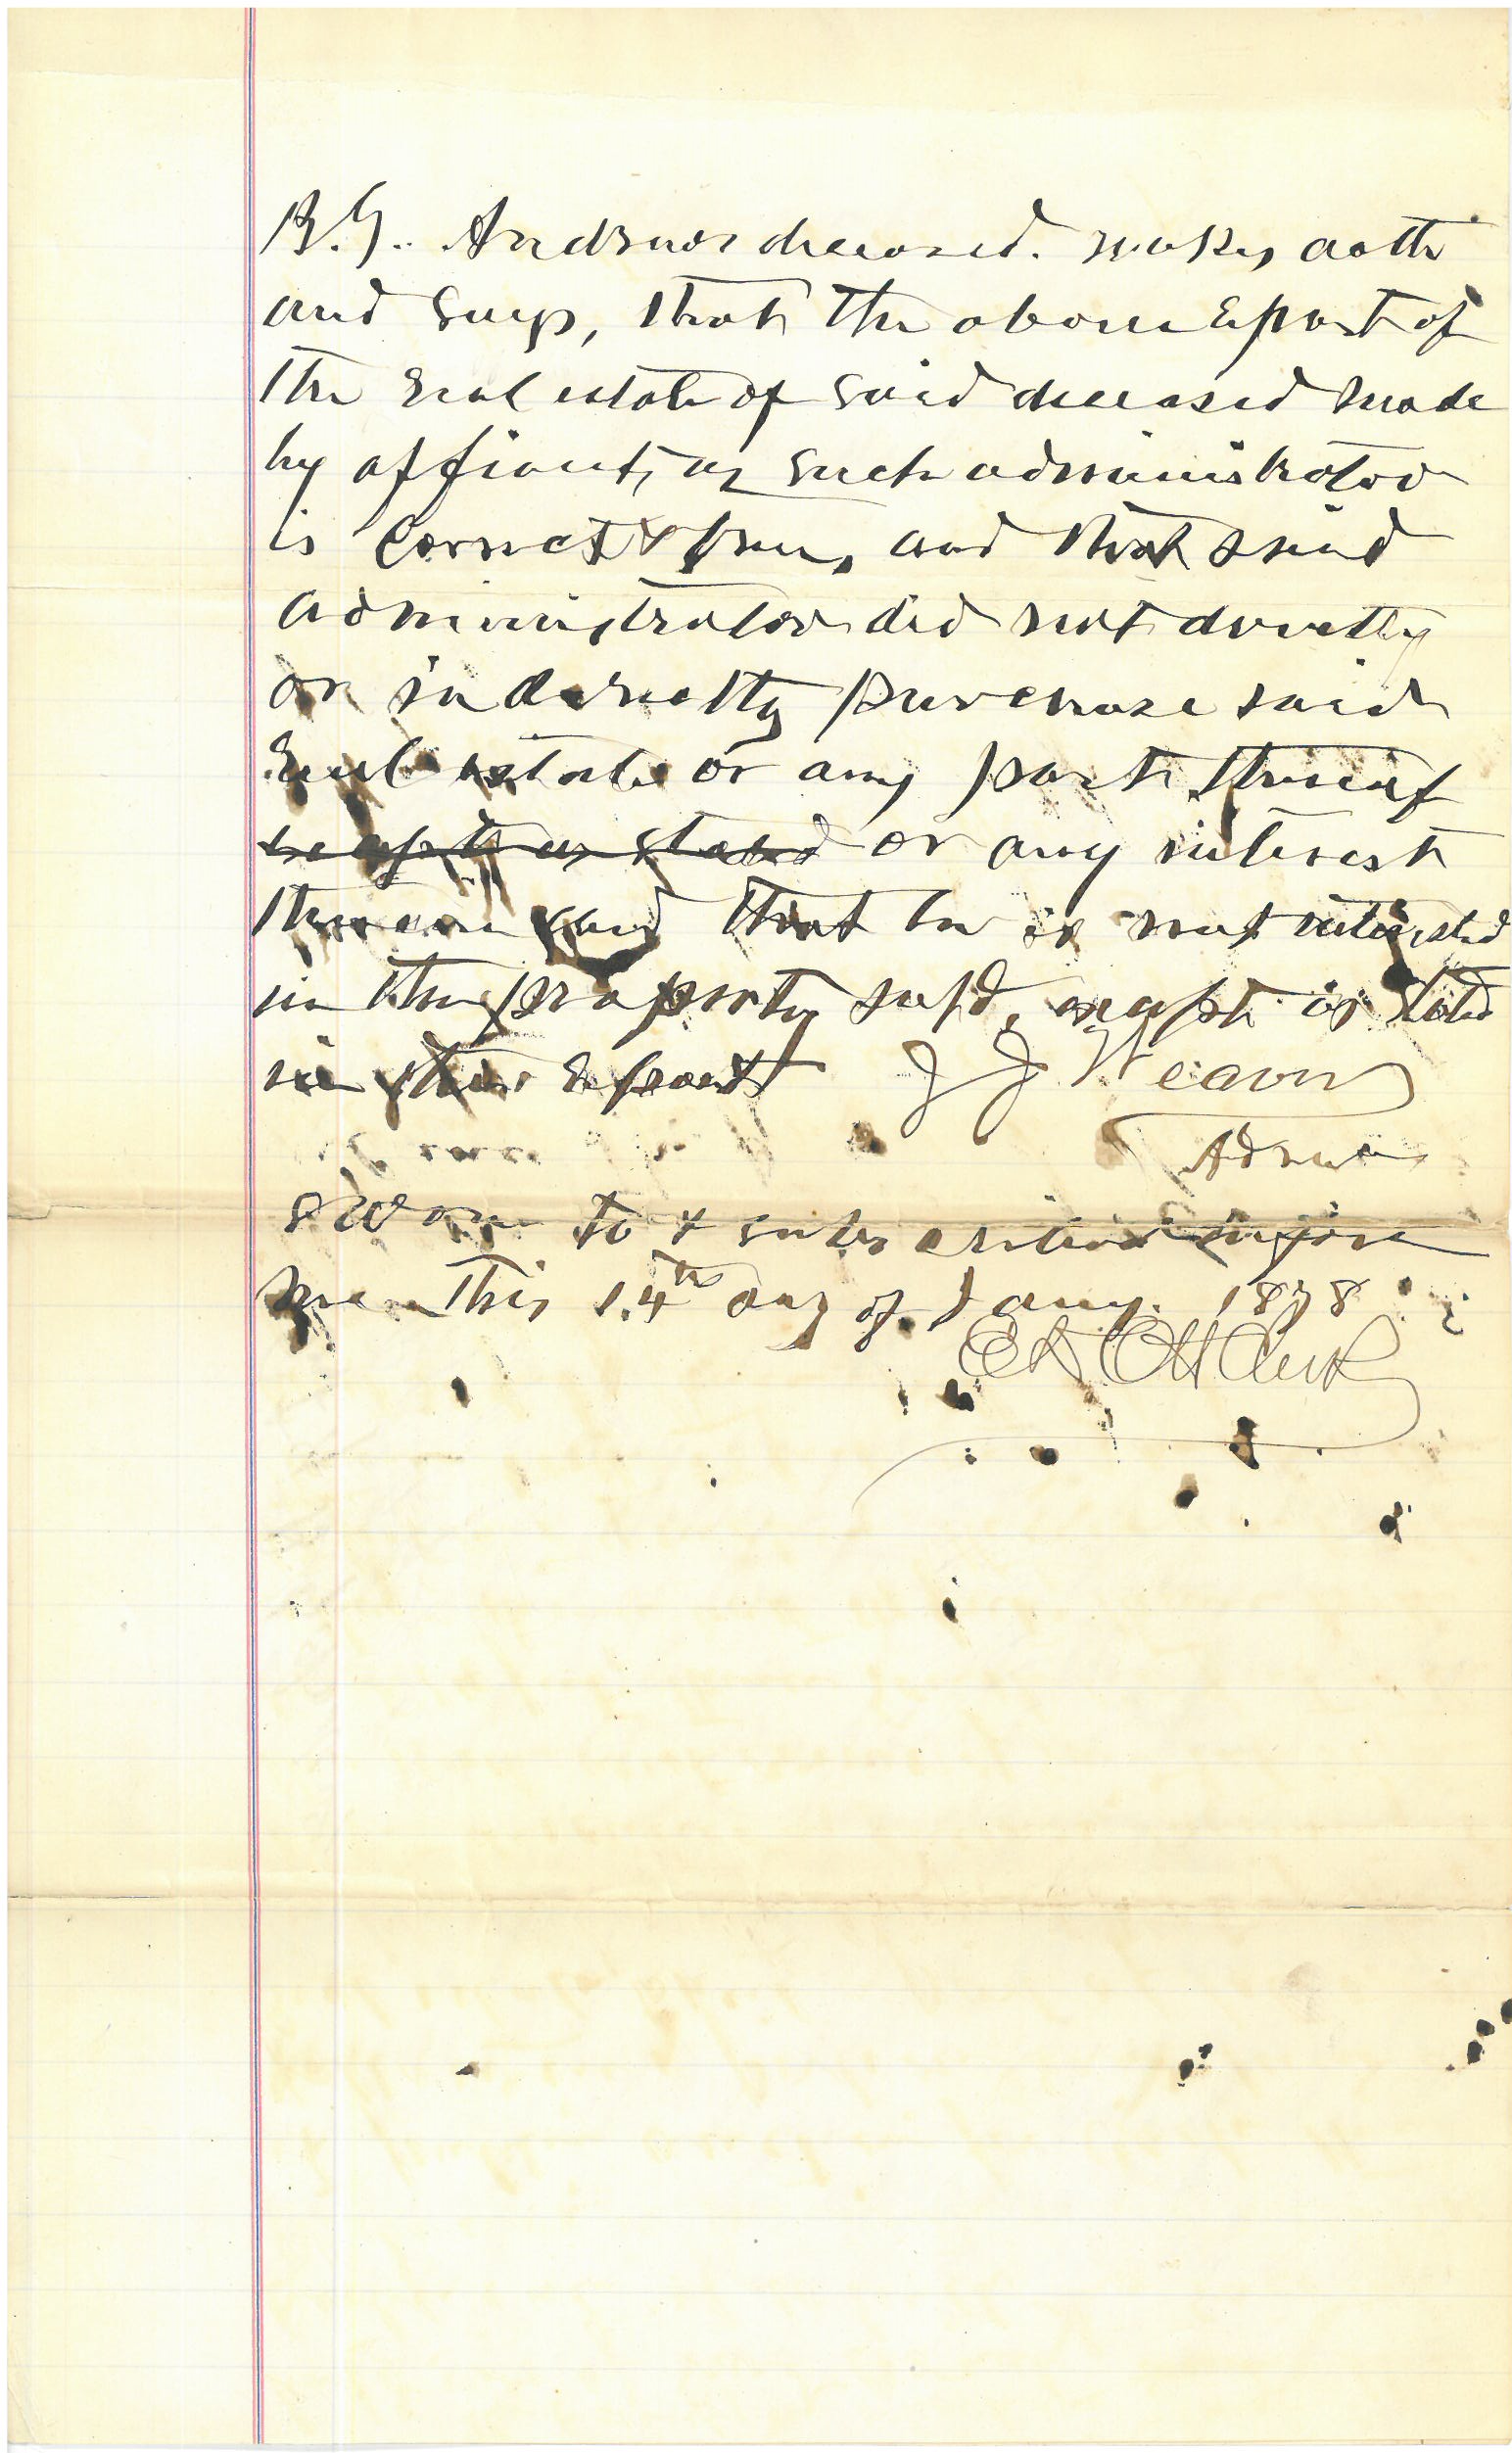 B.G. Andrews deceased. makes oath
and says, that the above Report of
the Real estate of said deceased made
by affiant, as such administrator
is Correct & true, and that said
administrator did not directly
or indirectly purchase said
Real estate or any part thereof
except as stated or any interest
therein and that he is not interested
in the property sold, except as stated
in this Report J J Weaver
Admr
Sworn to & subscribed before
me this 14th day of Jany. 1878
Clerk